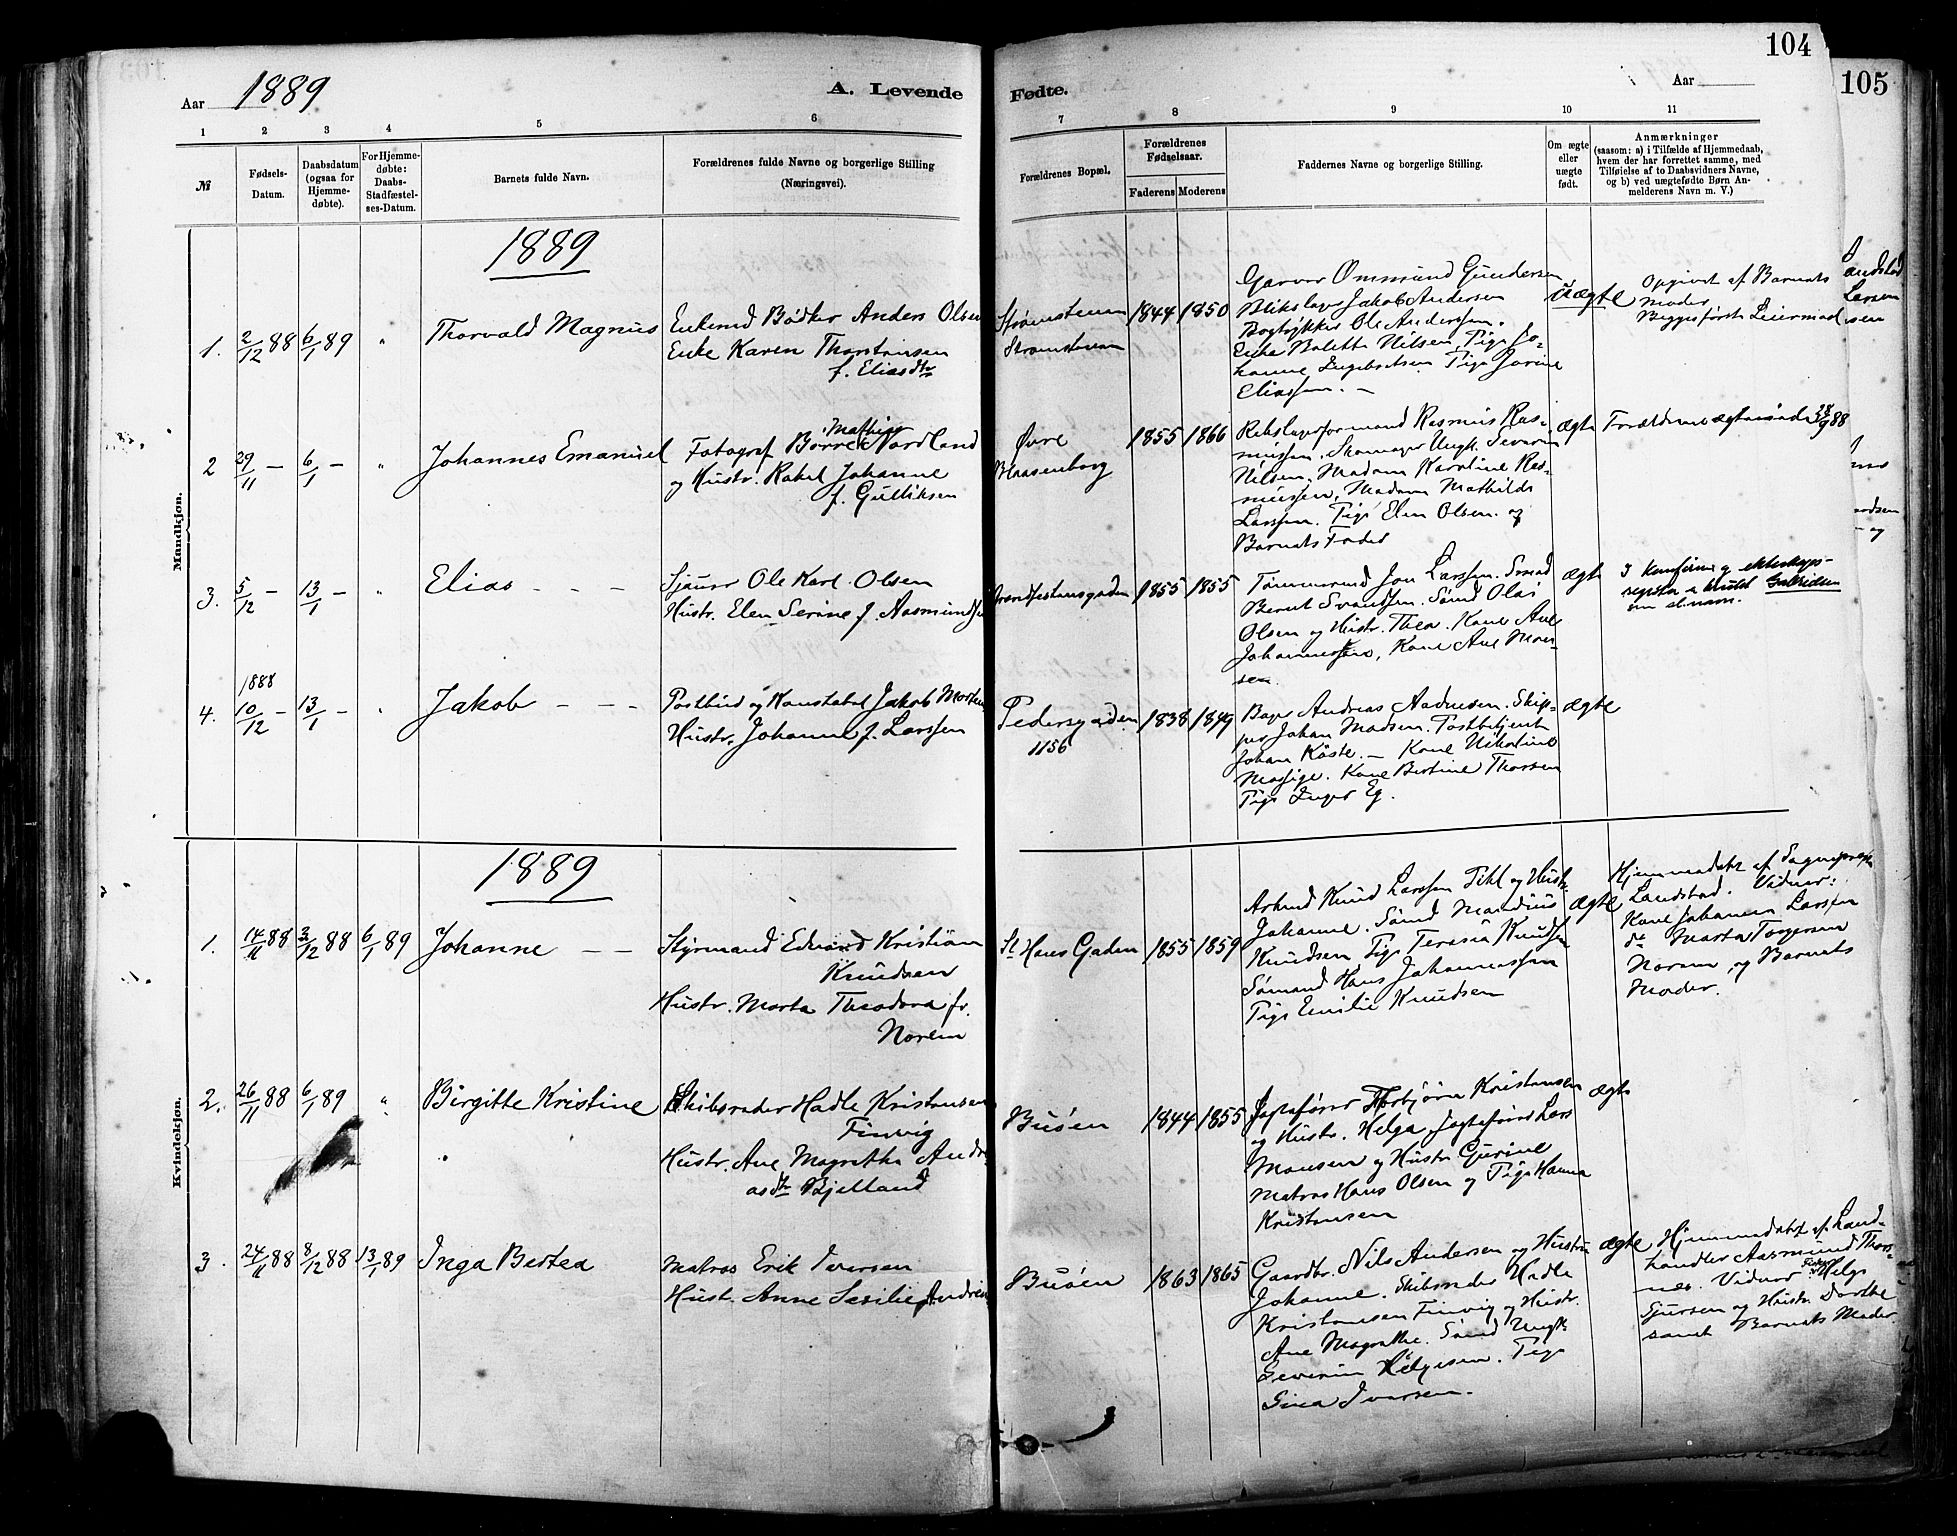 104
105
Aar 1889
A. Levende Fødte.
Aar
1 2 3 4 5 6 7 8 9 10 11
№
Fødsels-Datum.
Daabsdatum (ogsaa for Hjemmedøbte).
For Hjemmedøbte: Daabs-Stadfæstelses-Datum.
Barnets fulde Navn.
Forældrenes fulde Navne og borgerlige Stilling
(Næringsvei).
Forældrenes Bopæl.
Forældrenes Fødselsaar.
Faderens Moderens
Faddernes Navne og borgerlige Stilling.
Om ægte eller uægte født.
Anmærkninger
(saasom: a) i Tilfælde af Hjemmedaab,
hvem der har forrettet samme, med
Tilføielse af to Daabsvidners Navne,
og b) ved uægtefødte Børn Anmelderens Navn m. V.)
Mandkjøn.
1889
1. 2/12 88 6/1 89 " Thorvald Magnus
Enkemd Bødker Anders Olsen
Enke Karen Thorstensen
f. Eliasdtr
Strømstenen
Strømstenen
1844 1850
Garver Ommund Gundersen
Blikslager Jakob Andersen
Bogtrykker Ole Anderssen.
Enke Bolette Nilsen, Pige Johanne Ingebretsen. Pige Jorine
Eliassen. —
uægte
Opgivet af Barnets
Moder
Begges første Leiermaal
2 29/11 – 6/1 – " Johannes Emanuel
Fotograf Børre Mathias Nordland
og Hustr. Rakel Johanne
f. Gulliksen
Øvre
Blaasenborg
1855 1866
Rebslagerformand Rasmus Rasmussen. Skomager Ungk. Severin
Nilsen. Madam Karoline Rasmussen, Madam Mathilde
Larssen. Pige Elen Olsen. og
Barnets Fader
ægte
Forældrene ægteviede 28/9 88
3. 5/12 – 13/1 – " Elias – – –
Sjauer Ole Karl Olsen
Hustr. Elen Serine f. Aasmundsen
1855 1855
Tømmermd Jon Larssen. Smed
Bernt Svendsen. Sømd Olas
Olsen og Hustr. Thea. Kone Ane
Johannessen, Kone Ane Monsen.
ægte
4. 1888 10/12 – 13/1 – " Jakob – – –
Postbud og Konstabel Jakob Morten
Hustr. Johanne f. Larssen
Pedersgaden
1156
1838 1849
Bager Andreas Aadnesen. Skipper Johan Madsen. Postbetjent
Johan Käste. – Kone Nikoline
Massige. Kone Bertine Thorsen
Pige Inger Eg.
ægte
Kvindekjøn.
1889
1. 14/11 88 3/12 88 6/1 89 Johanne – –
Styrmand Edvard Kristian
Knudsen
Hustr. Marta Theodora f.
Norem
St Hans Gaden
1855 1859
Arbmd Knud Larssen Tihl og Hustr.
Johanne. Sømd Mandius
Knudsen Pige Teresia Knudsen
Sømand Hans Johannessen
Pige Emilie Knudsen
ægte
Hjemmedøbt af Sogneprest
Landstad. Vidner:
Kone Johanna Larssen
do Marta Torgersen
Norem, og Barnets
Moder.
2. 26/11 88 6/1 89 " Birgitte Kristine
Skibsreder Hadle Kristensen
Finvig
Hustr. Ane Magrethe Andreasdtr Bjelland
Buøen
1844 1855
Jagtefører Thorbjørn Kristensen
og Hustr. Helga, Jagtefører Lars
Monsen og Hustr. Gurine
Matros Hans Olsen og Pige Hanna
Kristensen
ægte
3. 24/11 88 8/12 88 13/1 89 Inga Bertea
Matros Erik Iversen
Hust. Anne Serilie Andrea
Buøen
1863 1865
Gaardbr. Nils Andersen og Hustru
Johanne. Skibsreder Hadle
Kristensen Finvig og Hustr.
Ane Magrethe. Sømd Ungk
Severin Helgesen. Pige
Gina Iversen.
ægte
Hjemmedøbt af Landhandler Aasmund Thorsnes. Vidner Helge
Sjursen og Hustr. Dorthe
samt Barnets Moder